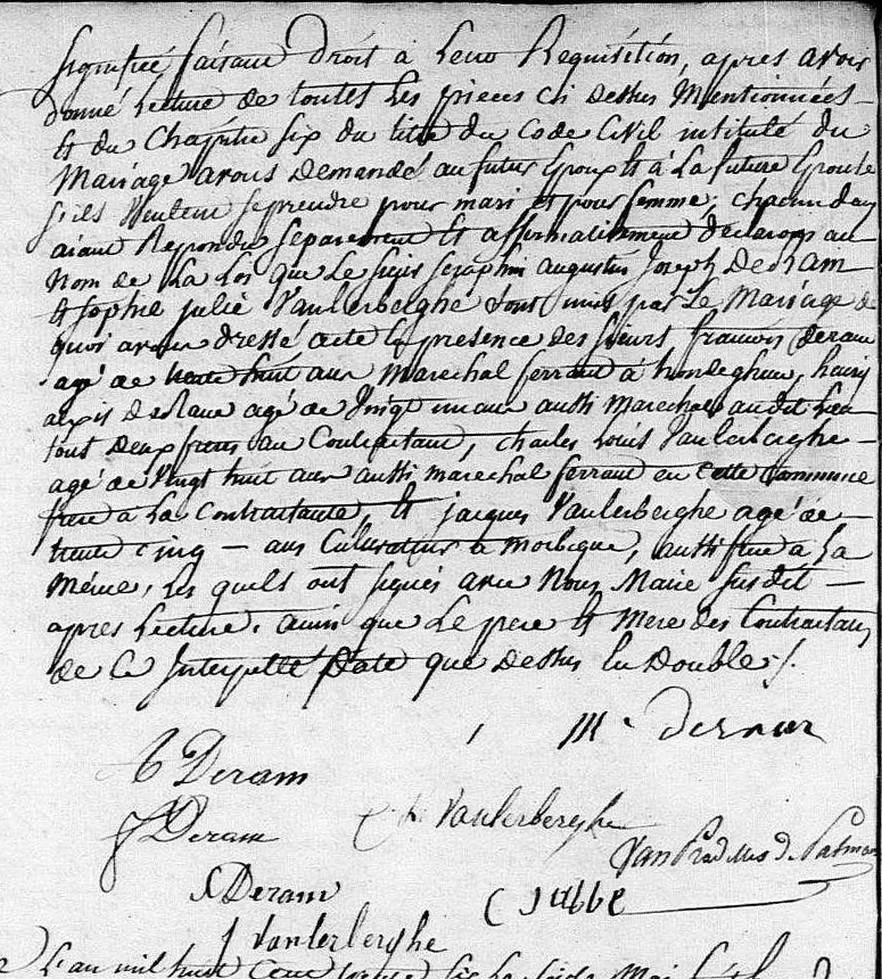 signifiée faisant droit a leur Requisition, apres avoir
donné Lecture de toutes Les pieces ci dessus Mentionnées -
Et du Chapitre six du titre du Code Civil intitulé du
Mariage avons Demandé au futur Epoux Et à La future Epouse
s'ils veulent se prendre pour mari et pour femme, chacun d'eux
aiant Repondu separement Et affirmativement declarons au
Nom de La Loi que Le sieur seraphin augustin Joseph Deram
Et sophie julie Vanlerberghe sont unis par Le Mariage de
quoi avons dressé acte en presence des sieurs françois Deram
agé de trente huit ans Marechal ferrant à hondeghem, henry
alexis Deram agé de Vingt un ans aussi Marechal audit Lieu
tous deux freres au Contractant, charles Louis Vanlerberghe -
agé de Vingt huit ans aussi marechal ferrant en cette Commune
frere a La Contractante, Et jacques Vanlerberghe agé de -
trente cinq - ans Cultivateur a Morbeque, aussi frere a La
Même, Les quels ont signés avec Nous Maire susdit -
apres Lecture. ainsi que Le pere Et Mere des Contractans
de Ce Interpellé Date que dessus En Double ./.
M
A Deram
f Deram
Ch Vanlerberghe
Van Pradelles de
S Deram
C
J Vanlerberghe
L'an mil huit Cent